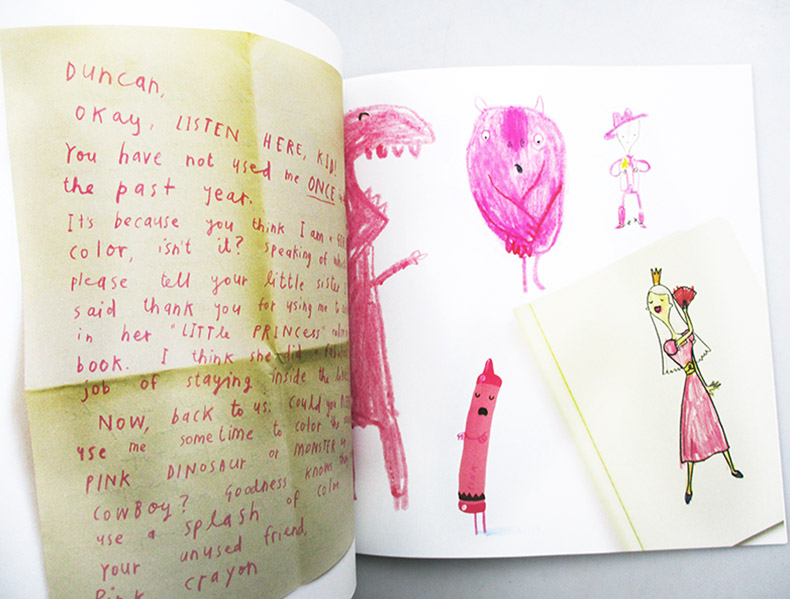 Duncan,
OKay, LISTEN HERE, KID!
You have not used me ONCE
the past year.
It's because you think I am a
color, isn't it? Speaking of
please tell your little sister
said thank you for using me to
in her "LITTLE PRINCESS"
book. I think she did
job of staying inside the
Now, back to us. Could you
use me sometime to color the
PINK DINOSAUR or MONSTER
COWBOY? Goodness knows
use a splash of color
Your unused friend,
Pink crayon